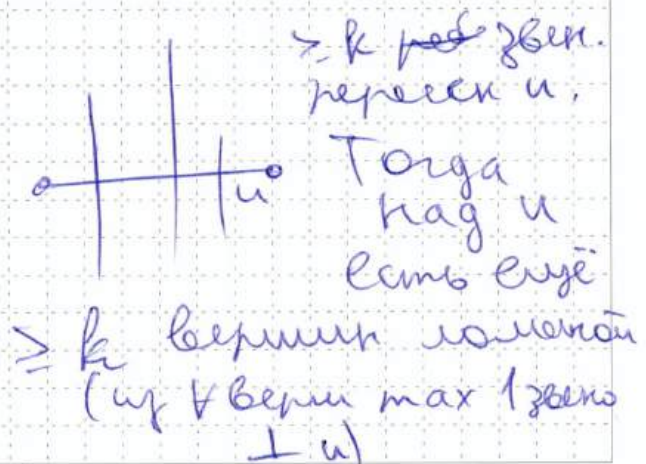 ≥ k звен.
пересек u.
Тогда
над u
u
есть ещё
≥ k вершин ломаной
(из ∀ верш max 1 звено
⊥ u)